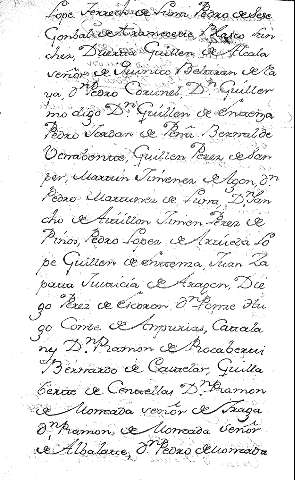 Lope Ferrech de Luna, Pedro de Sese
Gonbal de Tramacette Blasco
chez, Guillen de Alcala
señor de Quinto Beltran de
ya Dn. Pedro Coronel, Dn. Guiller
mo digo Dn. Guillen de Entema
Pedro Jordan de Peña Bernal de
Guillen Perez de San
per, Martin Ximenez de Agon, Dn
Pedro Martinez de Luna, Dn. San
cho de Antillon Ximen Perez de
Pinos, Pedro Lopez de Lo
pe Guillen de Entema, Juan Za
pata Justicia de Aragon, Die
go Perez de Escoron Dn. Ponze Hu
go Conte de Ampurias, Catala
n y Dn. Ramon de Rocaberui
Bernardo de Guilla
bertu de Centellas Dn. Ramon
de Moncada señor de Fraga
Dn. Ramon, de Moncada señor
de Albalate, Dn. Pedro de Moncada